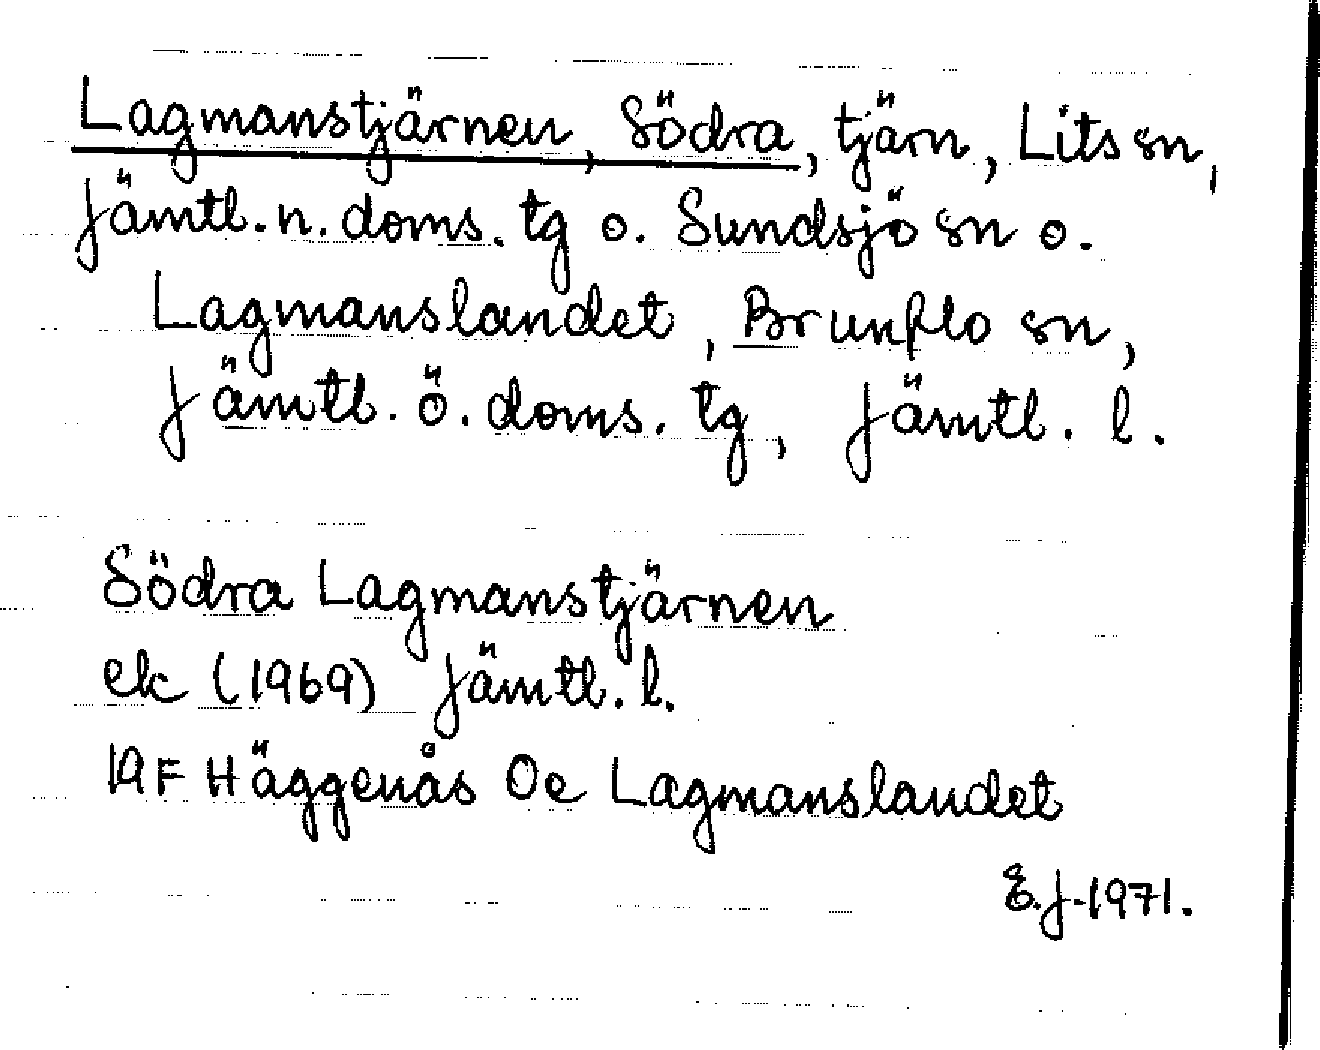 Lagmanstjärnen, Södra, tjärn, Lits sn,
Jämtl. n. doms. tg o. Sundsjö sn o.
Lagmanslandet, Brunflo sn,
Jämtl. ö. doms. tg, Jämtl. l.
Södra Lagmanstjärnen
ek (1969) Jämtl. l.
19F Häggenås Oe Lagmanslandet
E.J-1971.